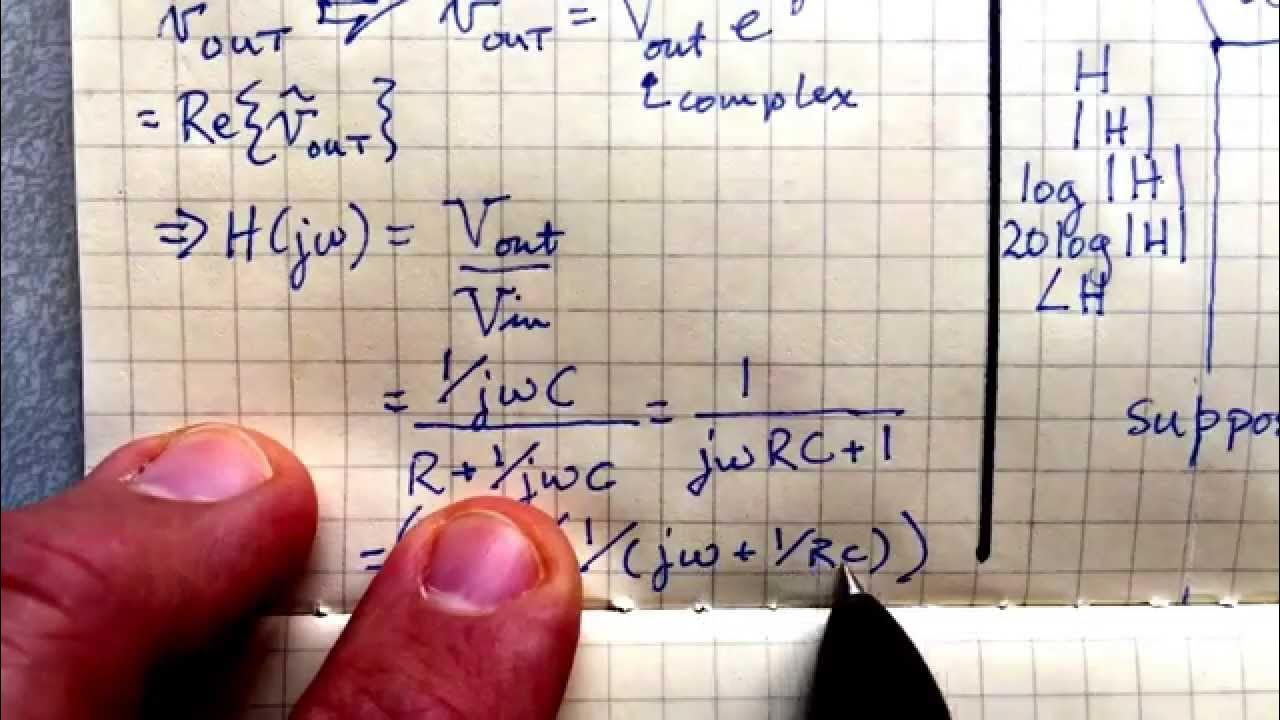 v_OUT ⇌ ṽ_OUT = V_out e
complex
= Re{ṽ_OUT}
⇒ H(jω) = V_out / V_in
= 1/jωC / (R + 1/jωC) = 1 / (jωRC + 1)
= ( (1/(jω + 1/RC))
H
|H|
log |H|
20 log |H|
∠H